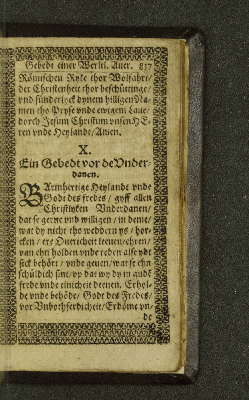 Gebede einer Werlt. Auer. 837
Römischen Ryke thor Wolfahrt/
der Christenheit thor beschüttinge/
vnd sünderlyck dynem hilligen Na-
men tho Pryse vnde ewigem Laue/
dorch Jesum Christum vnsen HE-
ren vnde Heylande/ Amen.
X.
Ein Gebedt vor de Vnder-
danen.
BArmhertige Heylande vnde
Godt des fredes/ gyff allen
Christlyken Vnderdanen/
dat se gerne vnd willigen/ in deme/
wat dy nicht tho weddern ys/ hor-
cken/ ere Ouericheit teenen/ ehren/
van ehn holden vnde reden alse ydt
sick behört/ vnde geuen/ wat se ehn
schüldich sint/ vp dat wy dy in gude
frede vnde einicheit deenen. Erhol-
de vnde behöde/ Godt des Fredes/
vor Vnbothferdicheit/ Erdöme vn-
de